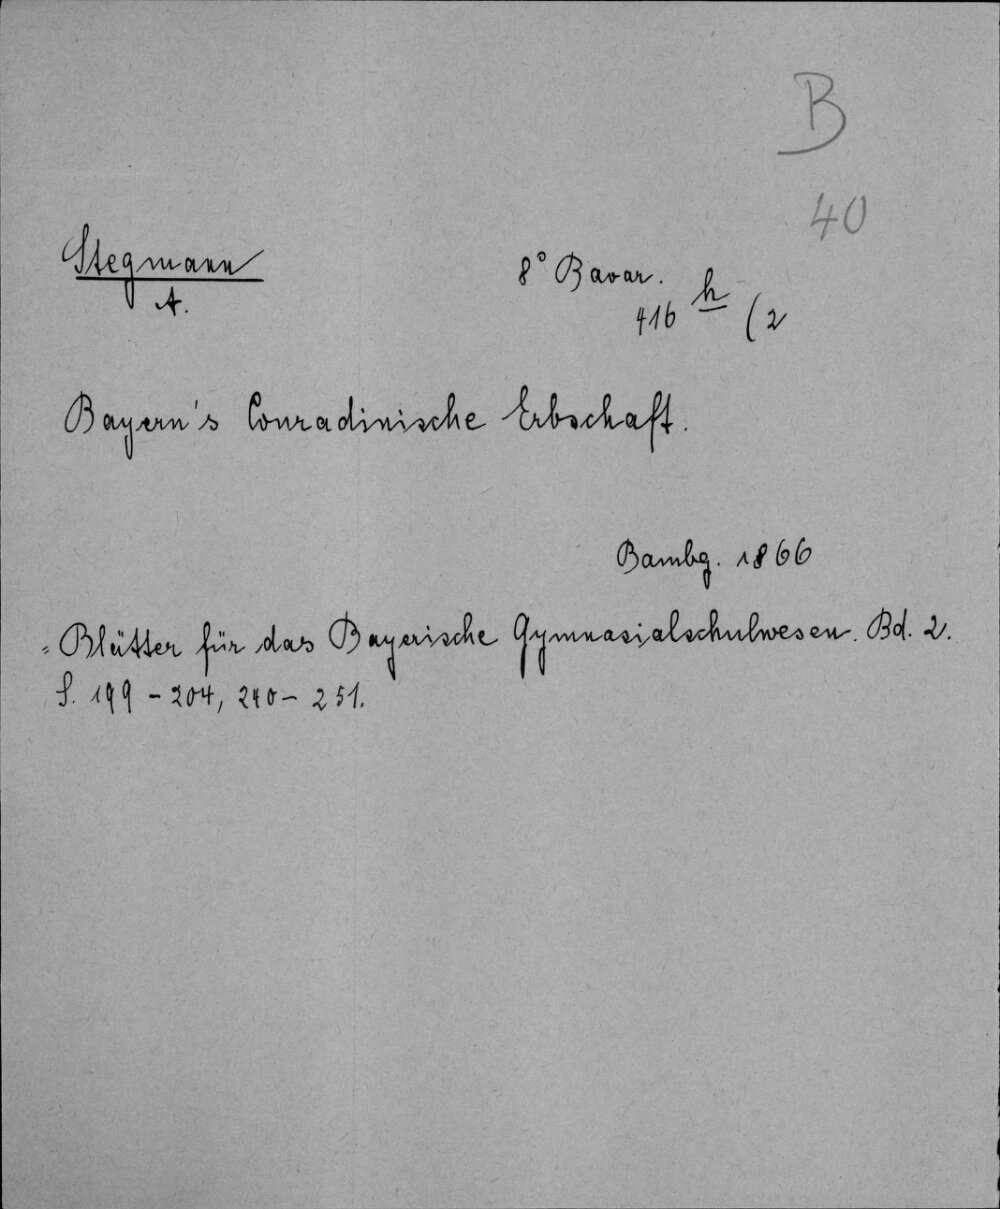 B
40
Stegmann
A.
8° Bavar.
416 h (2
Bayern's Conradinische Erbschaft.
Bambg. 1866
= Blätter für das Bayerische Gymnasialschulwesen. Bd. 2.
S. 199 - 204, 240 - 251.